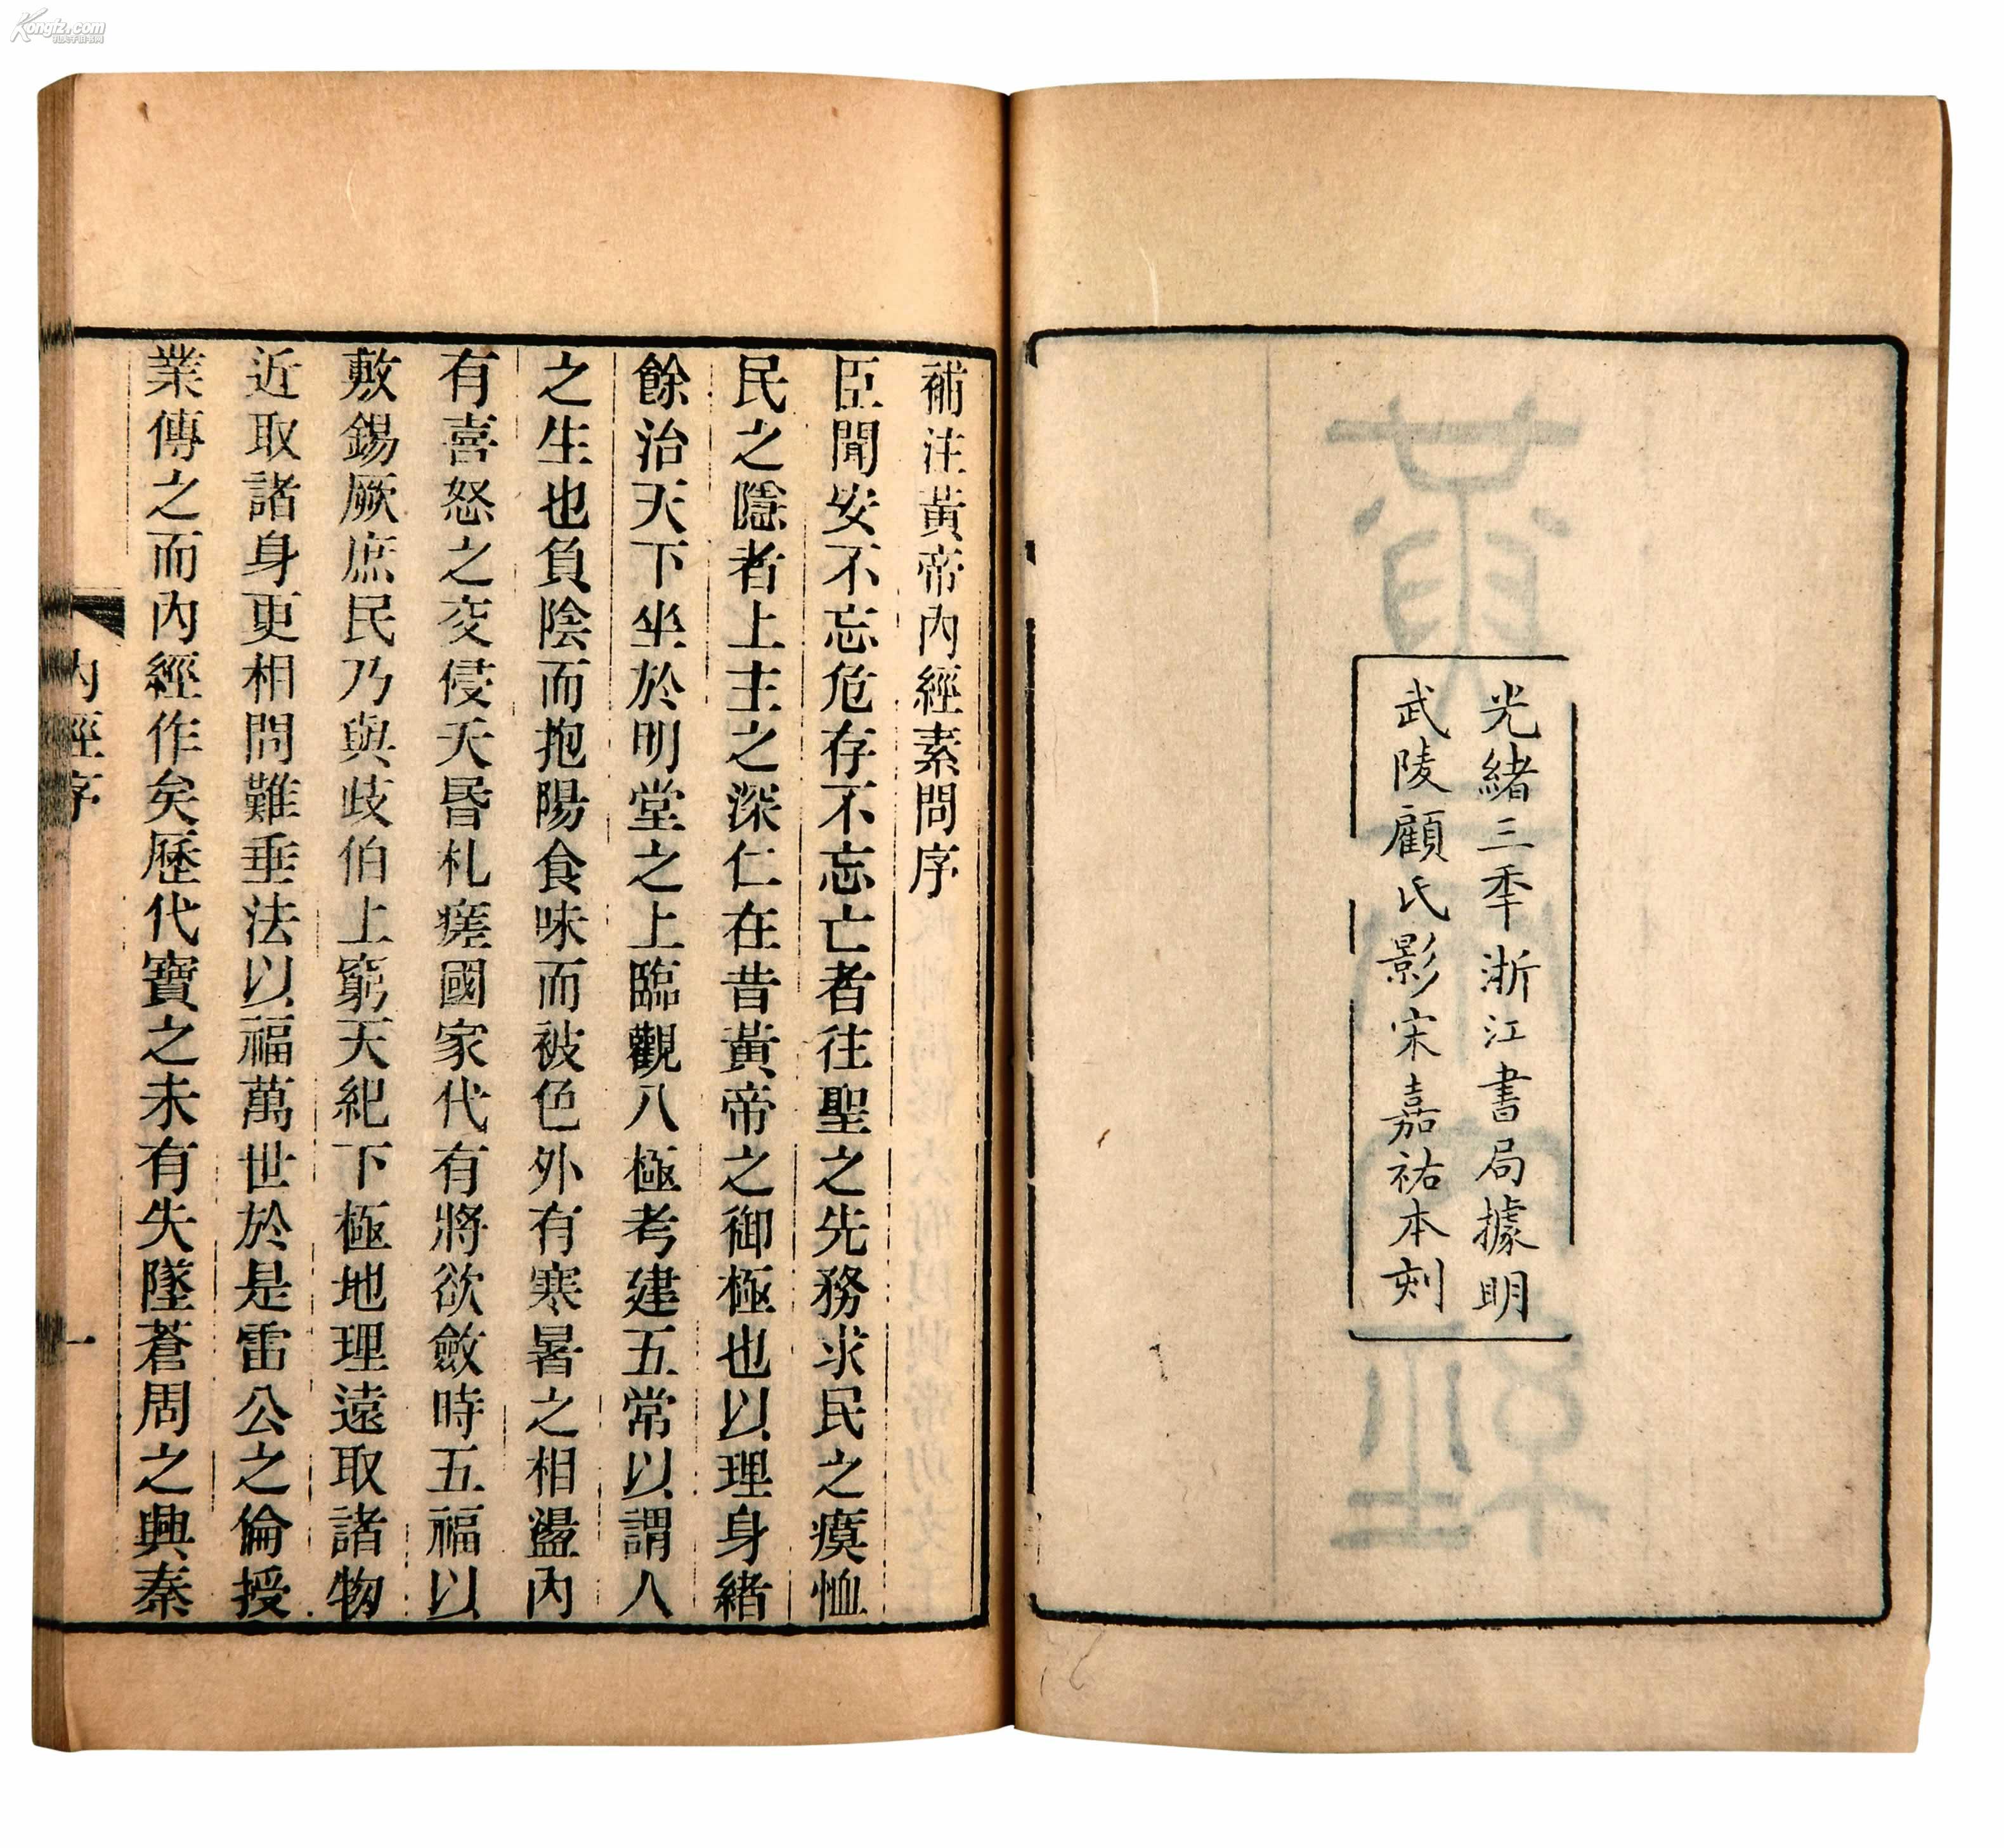 Kongfz.com
光緒三秊浙江書局據明
武陵顧氏影宋嘉祐本刻
補注黃帝內經素問序
臣聞安不忘危存不忘亡者往聖之先務求民之瘼恤
民之隱者上主之深仁在昔黃帝之御極也以理身緒
餘治天下坐於明堂之上臨觀八極考建五常以謂人
之生也負陰而抱陽食味而被色外有寒暑之相盪內
有喜怒之交侵夭昬札瘥國家代有將欲斂時五福以
敷錫厥庶民乃與歧伯上窮天紀下極地理遠取諸物
近取諸身更相問難垂法以福萬世於是雷公之倫授
業傳之而內經作矣歷代寶之未有失墜蒼周之興秦
內經序
一